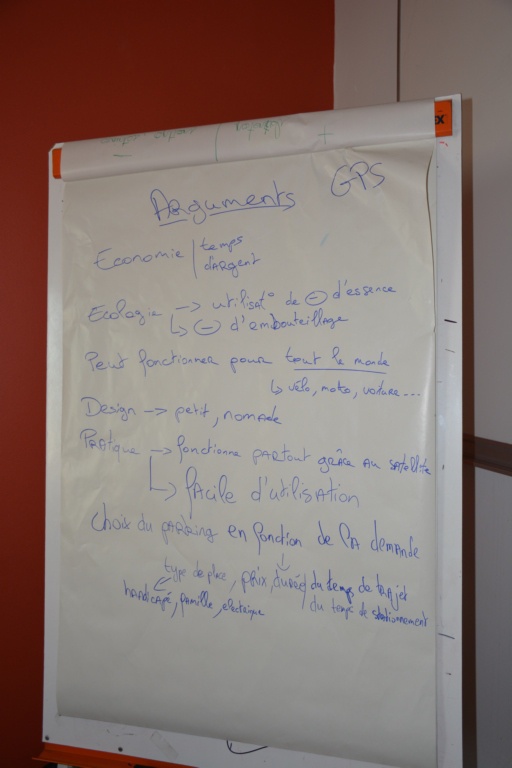 Arguments GPS
Economie | temps
d'argent
Ecologie -> utilisat° de ⊖ d'essence
↳ ⊖ d'embouteillage
Peut fonctionner pour tout le monde
↳ vélo, moto, voiture...
Design -> petit, nomade
Pratique -> fonctionne partout grâce au satellite
↳ facile d'utilisation
Choix du parking en fonction de la demande
type de place, prix, durée / du temps de trajet
handicapé, famille, electrique / du temps de stationnement